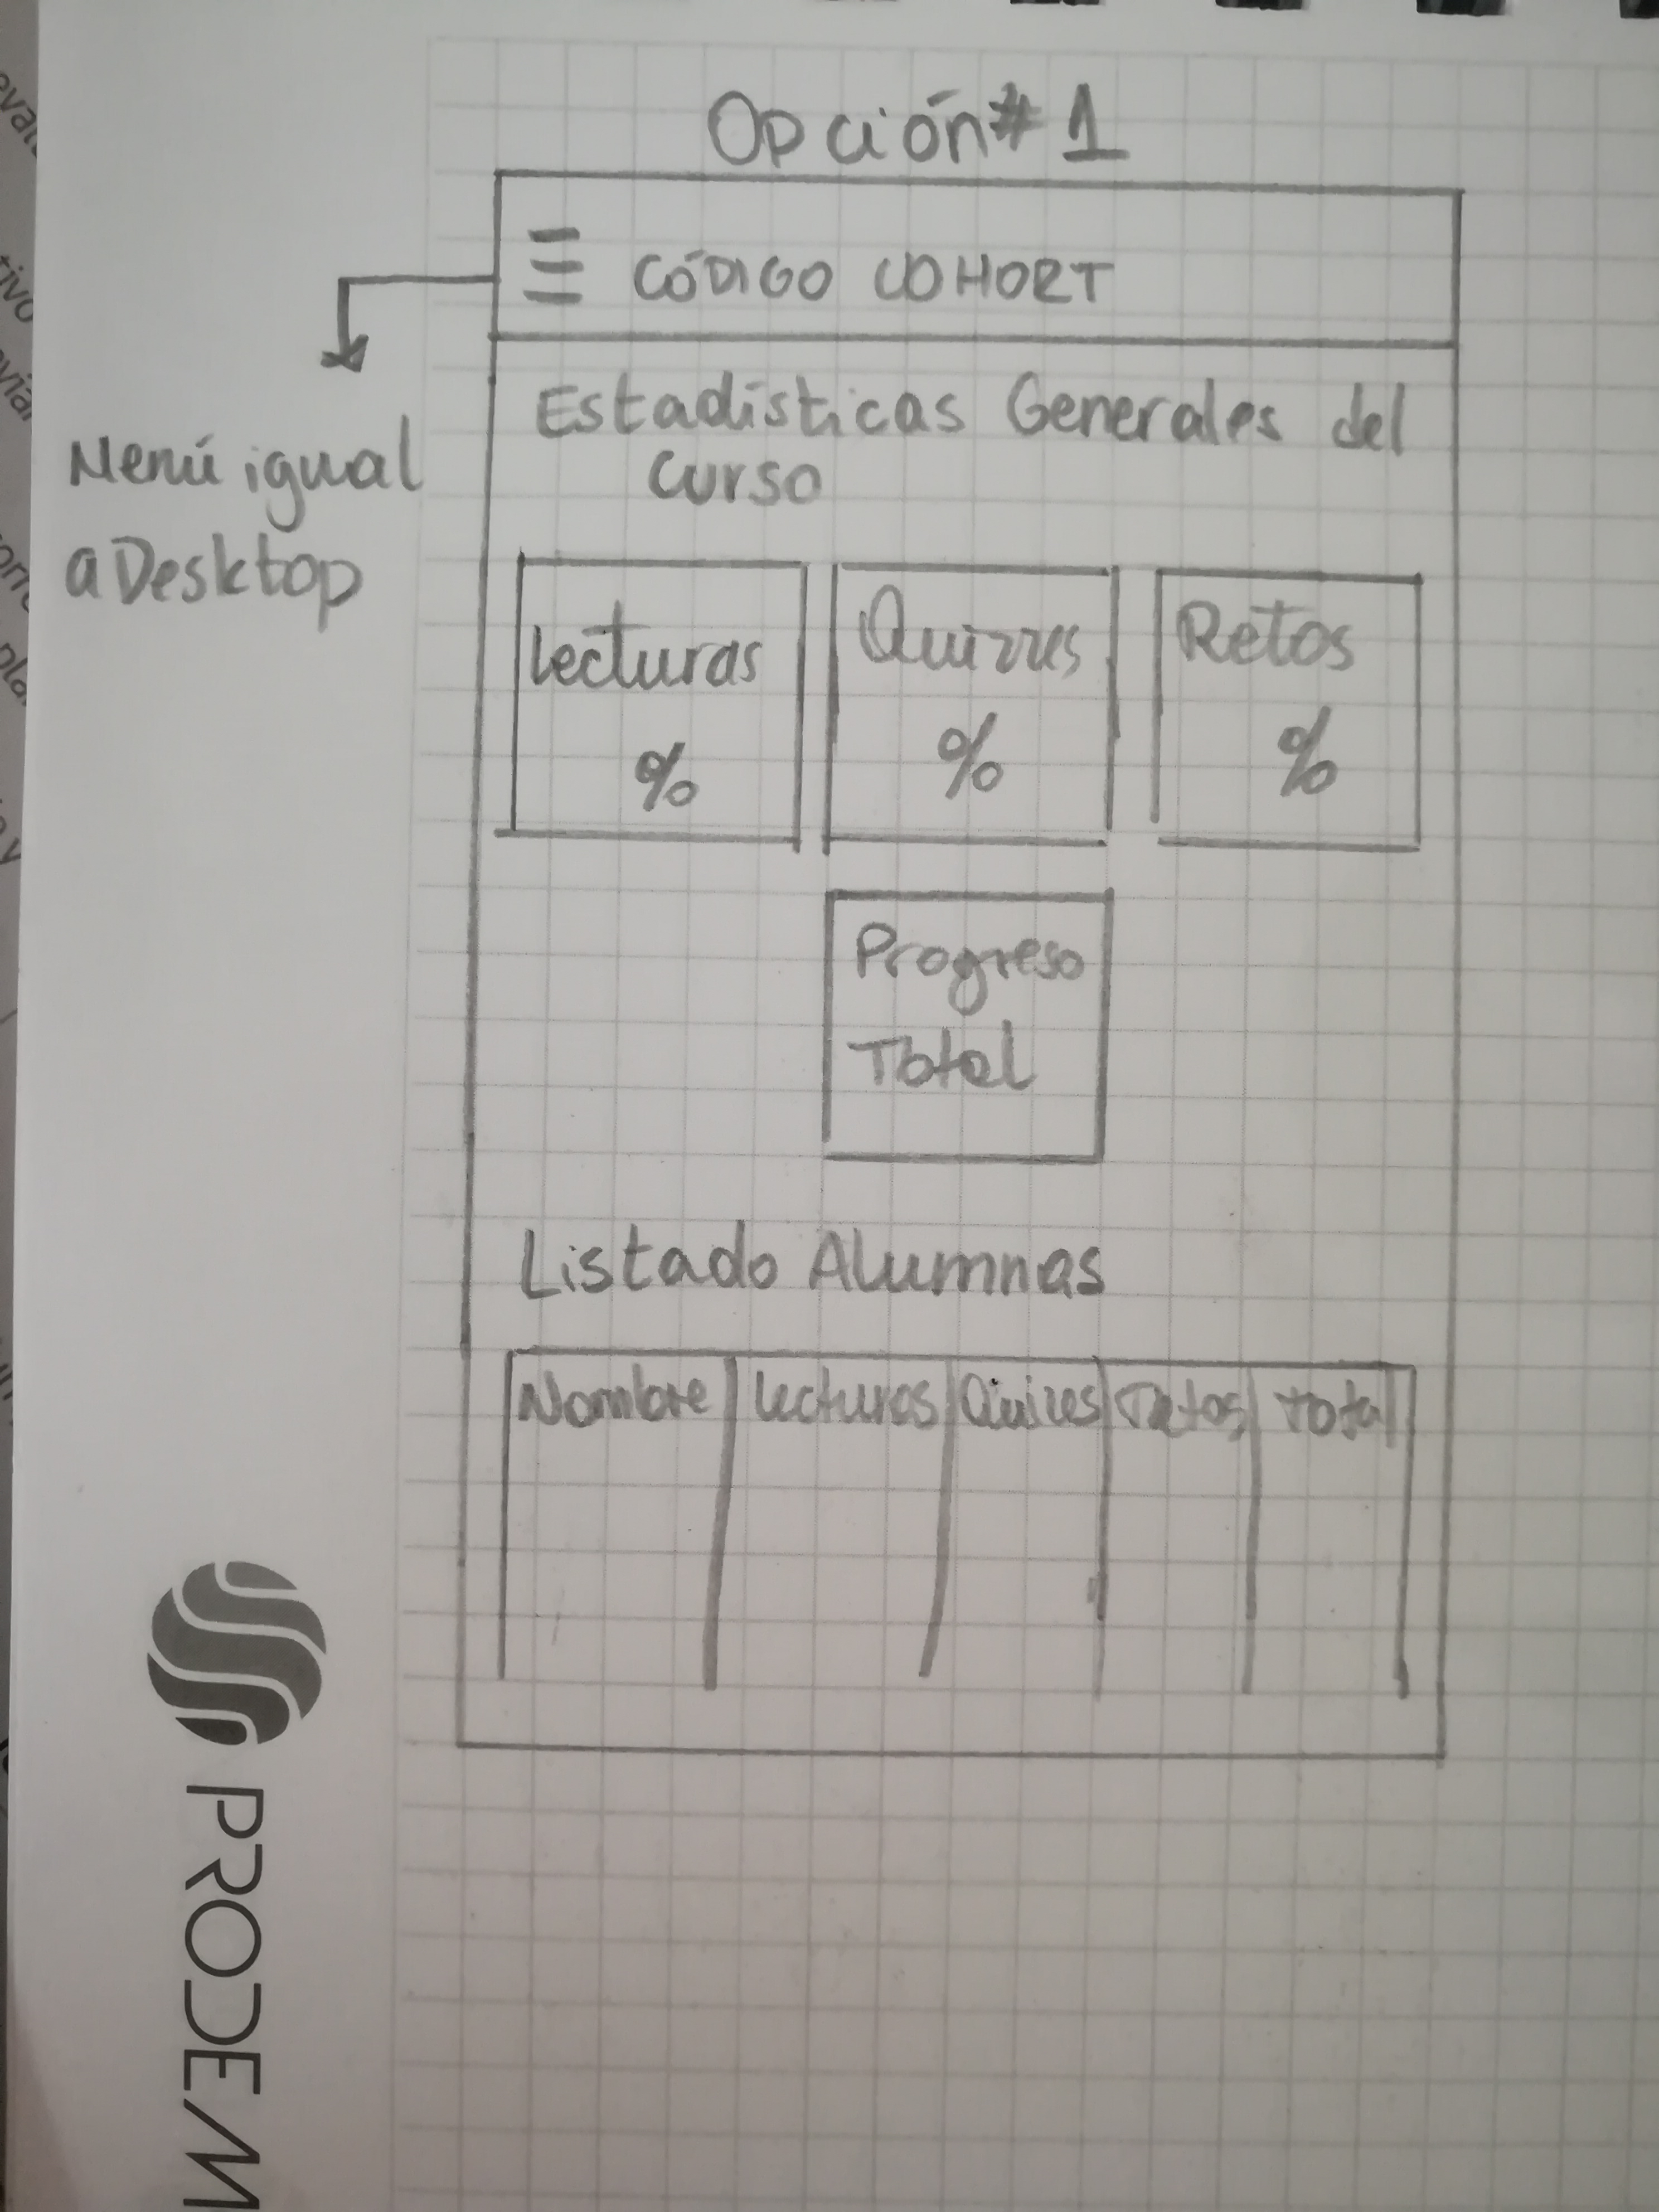 Opción # 1
CÓDIGO COHORT
Menú igual
a Desktop
Estadísticas Generales del
Curso
Lecturas
%
Quizzes
%
Retos
%
Progreso
Total
Listado Alumnas
Nombre Lecturas Quizes Retos total
PRODEM